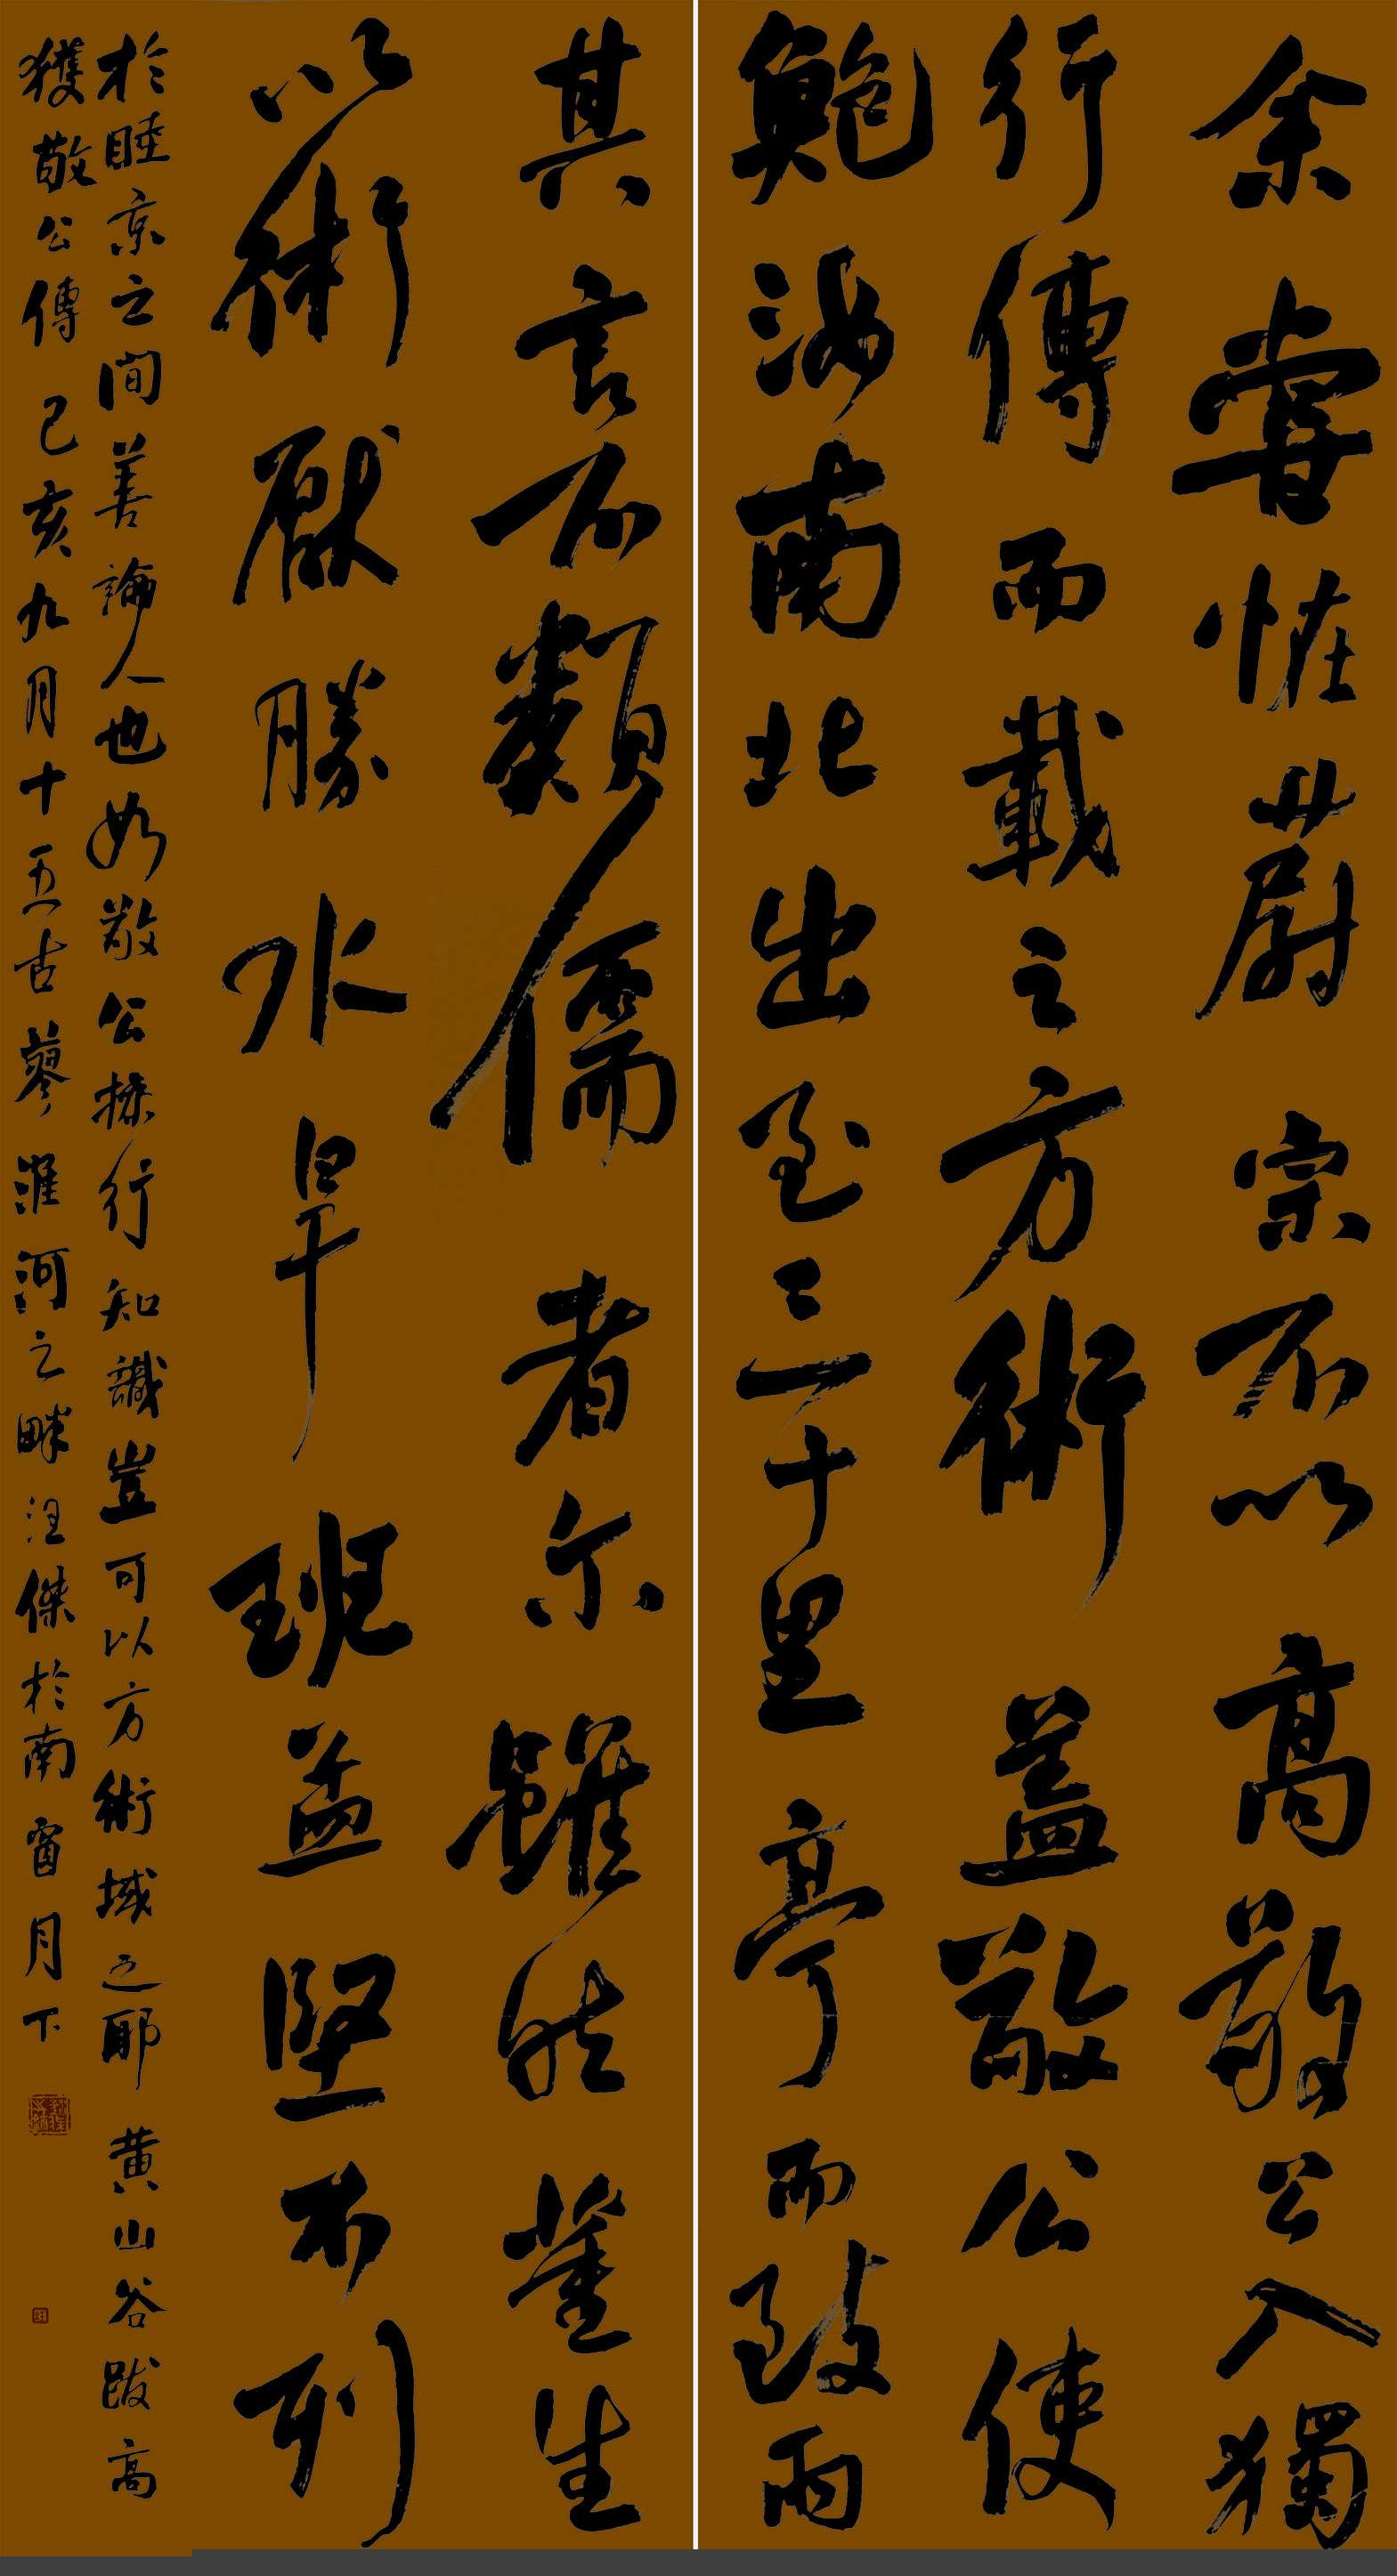 余嘗恠蔚宗不以高敬公入獨
行傳而載之方術蓋敬公使
鮑汝南北出至三十里亭而致雨
其言不類儒者尔雖然董生
以術厭勝水旱班孟堅不列
於眭京之間善論人也如敬公操行知識豈可以方術域之耶黄山谷跋高
獲敬公傳己亥九月十五古蓼淮河之畔汪傑於南窗月下